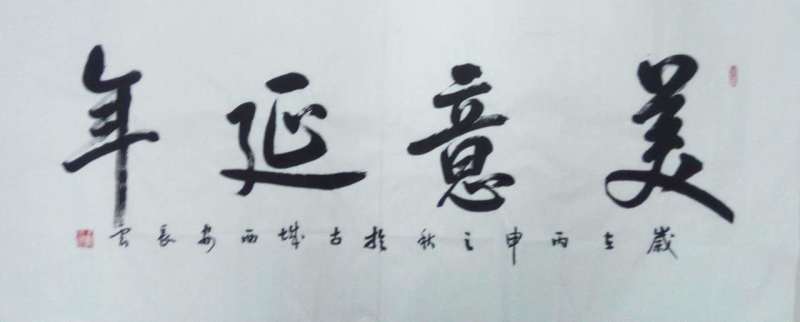 美意延年
歲在丙申之秋於古城西安長雲